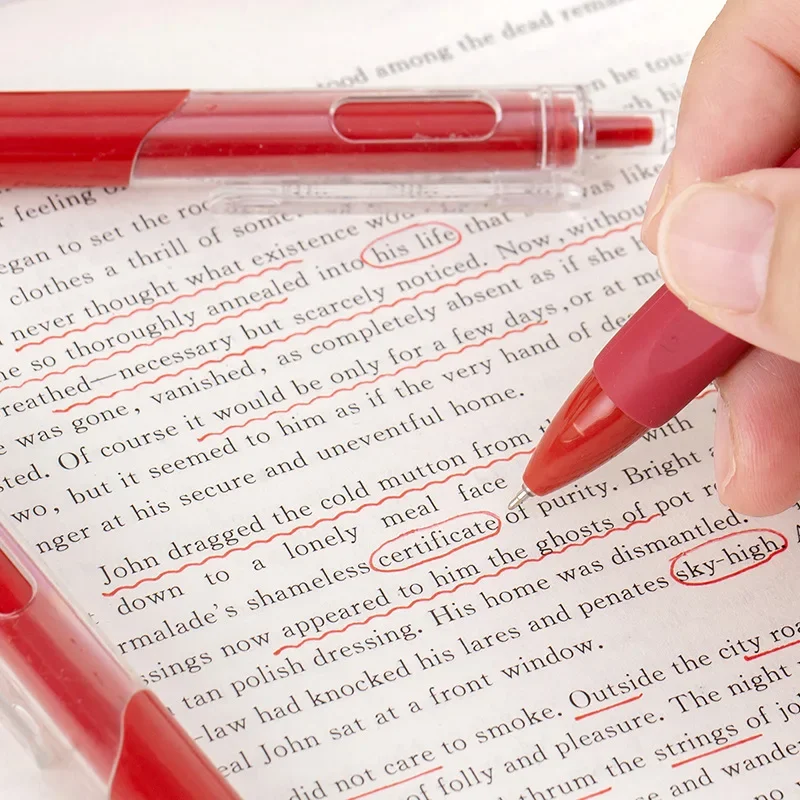 ood among the dead remai
n he tou-
r feeling of
gh hi
egan to set the roo
was like
clothes a thrill of some.
never thought what existence wou
into his life that
ne so thoroughly annealed
reathed—necessary but scarcely noticed. Now, withou
e was gone, vanished, as completely absent as if she h
sted. Of course it would be only for a few days, or at mo
wo, but it seemed to him as if the very hand of de
nger at his secure and uneventful home.
John dragged the cold mutton from
with
down to a lonely meal face
rmalade's shameless certificate of purity. Bright a
ssings now appeared to him the ghosts of pot r
tan polish dressing. His home was dismantled.
-law had knocked his lares and penates sky-high. A
eal John sat at a front window.
did not care to smoke. Outside the city roa
of folly and pleasure. The night
thrum the strings of jo
e and wande